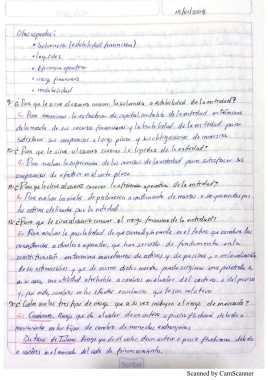 15/01/2018
Otros aspectos:
• Solvencia (estabilidad financiera)
• liquidez
• Eficiencia operativa
• riesgo financiero
• rentabilidad
9.- ¿Para que le sirve al usuario conocer la solvencia o estabilidad de la entidad?
R= Para examinar la estructura de capital contable de la entidad en términos
de la mezcla de sus recursos financieros y la habilidad de la entidad para
satisfacer sus compromisos a largo plazo y sus obligaciones de inversión.
10.- ¿Para que le sirve al usuario conocer la liquidez de la entidad?
R= Para evaluar la suficiencia de los recursos de la entidad para satisfacer sus
compromisos de efectivo en el corto plazo.
11.- ¿Para que le sirve al usuario conocer la eficiencia operativa de la entidad?
R= Para evaluar los niveles de producción o rendimiento de recursos a ser generados por
los activos utilizados por la entidad.
12.- ¿Para que le sirve al usuario conocer el riesgo financiero de la entidad?
R= Para evaluar la posibilidad de que ocurra algún evento en el futuro que cambie las
circunstancias actuales o esperadas, que han servido de fundamento en la
cuantificación en términos monetarios de activos y de pasivos, o en la valuación
de sus estimaciones, y que de ocurrir dicho evento, puede originar una pérdida o, en
su caso, una utilidad atribuible a cambios en el valor del activo o del pasivo
y, por ende, cambios en los efectos económicos que le son relativos.
13.- ¿Cuáles son los tres tipos de riesgo que a su vez incluyen el riesgo de mercado?
R= Cambiario: Riesgo que el valor de un activo o pasivo fluctúe debido a
movimientos en los tipos de cambio de monedas extranjeras.
De tasas de Interés: riesgo que el valor de un activo o pasivo fluctúe debido
a cambios en el mercado del costo de financiamiento.
Scribe
Scanned by CamScanner